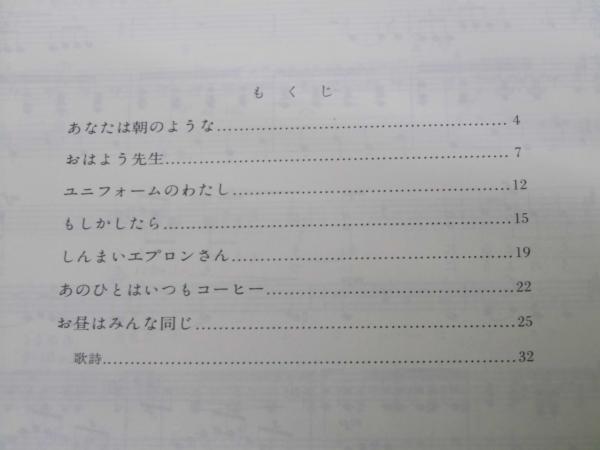 もくじ
あなたは朝のような……………………………………………… 4
おはよう先生……………………………………………………… 7
ユニフォームのわたし……………………………………………12
もしかしたら………………………………………………………15
しんまいエプロンさん……………………………………………19
あのひとはいつもコーヒー………………………………………22
お昼はみんな同じ…………………………………………………25
歌詩…………………………………………………………………32